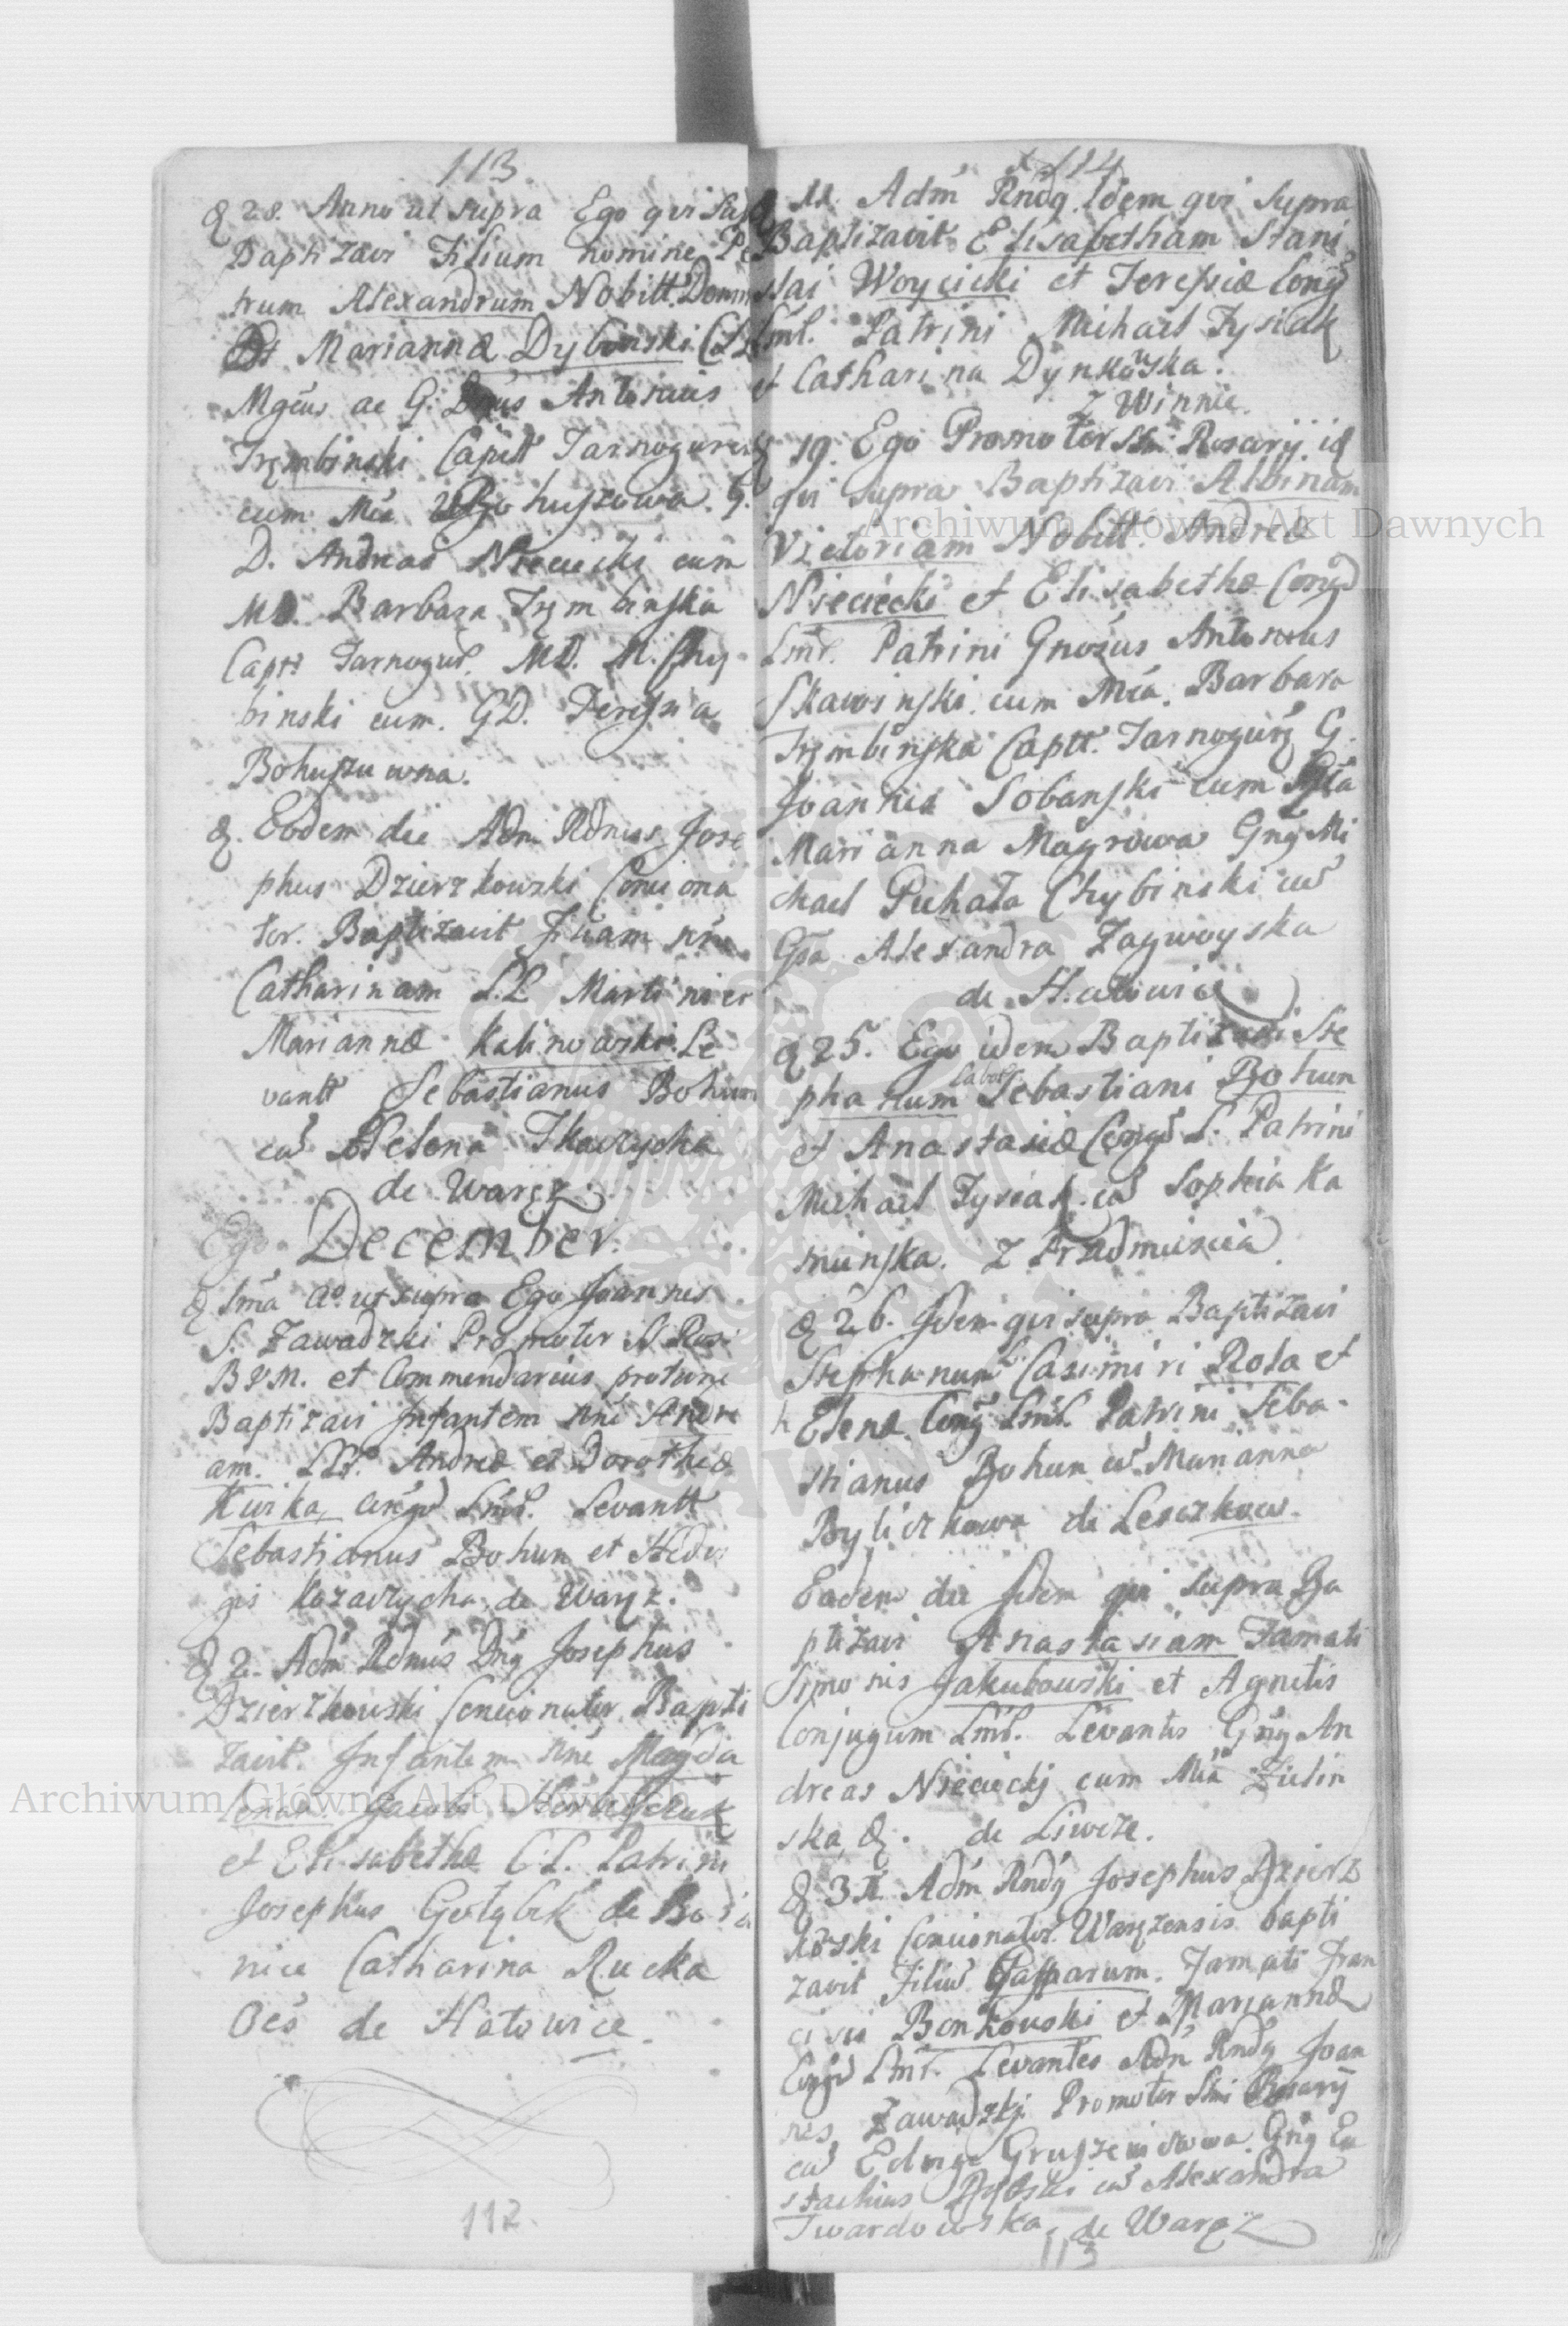 113.
& 28. Anno ut supra Ego qui Sup
Baptizavi Filium nomine Pe
trum Alexandrum Nobill. Domin
Et Marianna Dybowski CLL
Mgcus ac G. Dnus Antonius
Tręmbinski Capitt Tarnogurs
cum Mcia Bohuszowa. G.
D. Andreas Nieciecki cum
MD. Barbara Tręmbinska
Captt Tarnogur. MD. M. Chy
binski cum. GD. Teresia
Bohuszuwna.
&. Eodem die Adm Rdnus Jose
phus Dzierzkowski Conciona
tor. Baptizavit Filiam nne
Catharinam L.L. Martini et
Marianna Kalinowski. Le
vantt Sebastianus Bohun
cum Helena Tkaczycha
de Waręz
Ego December.
& 1ma Ao ut supra Ego Joannes
S. Zawadzki Promotor S. Rosi
BVM. et Commendarius protunc
Baptizavi Infantem nne Andre
am. LLr. Andrea et Dorothea
Kurka, Conjgū Lmr. Levantt
Sebastianus Bohun et Hedvi
gis Kozaczycha, de Waręz.
& 2. Adm Rdnus Dnq Josephus
Dzierzkowski Concionator Bapti
zavit. Infantem nne Magda
lenam Jacobi
et Elisabetha C.L. Patrini
Josephus Gołąbek de
nice Catharina Rucka
Oes de Hatowice.
112.
114
11. Adm Rndq. Idem qui supra
Baptizavit Elisabetham Stani
slai Woycicki et Teresiæ Conjg
Lmr. Patrini Michael Tysiak
et Catharina Dynkowska.
z Winnic.
19. Ego Promotor Smi Rosarij. id
qui supra Baptizavi Albinam
Victoriam Nobill. Andreæ
Nieciecki et Elisabethæ Conjgū
Lmr. Patrini Gnosus Antonius
Skawinski cum Mcia. Barbara
Trembinska Captt. Tarnogurs G.
Joannes Sobanski cum Gsa
Marianna Magrowa Gnq Mi
chael Puchała Chybinski cū
Gsa Alexandra Zagwoyska
de Hulowice
& 25. Ego idem Baptizavi Ste
phanum Labor. Sebastiani Bohun
et Anastasiæ Conjgū L. Patrini
Michael Tysiak cū Sophia Ka
minska. z Przedmiescia
& 26. Idem qui supra Baptizavi
Stephanum L. Casimiri Rosa et
Elenæ Conjg Lmr. Patrini Seba-
stianus Bohun cū Marianna
Byliczkowa de Leszkow.
Eadem die Idem qui supra Ba
ptizavi Anastasiam Famati
Simonis Jakubowski et Agnetis
Conjugum Lmr. Levantes Gnq An
dreas Nieciecki cum Mcia Zielin
ska, &. de Liwcze.
& 31. Adm Rndq Josephus Dzierz
kowski Concionator Waręzensis bapti
zavit Filiū Gasparum. Famati Fran
cisci Bonkowski et Marianna
Conjgū Lmr. Levantes Adm Rndq Joan
nes Zawadzki Promotor Smi Rosarij
cū Gruszeniowa Gnq Eu
stachius cū Alexandra
Twardowska, de Waręz
113
Archiwum Główne Akt Dawnych
Archiwum Główne Akt Dawnych